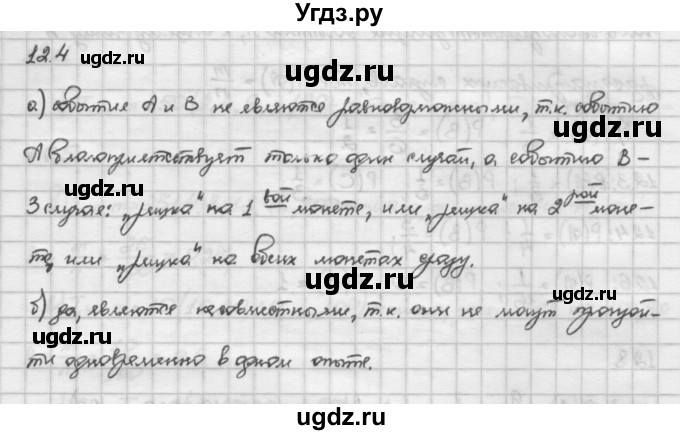 Угдз.ру
12.4
ugdz.ru
ugdz.ru
а) событие А и В не являются равновозможными, т.к. событию
ugdz.ru
А благоприятствует только один случай, а событию В -
ugdz.ru
3 случае: „решка" на 1 вой монете, или „решка" на 2 рой моне-
ugdz.ru
те, или „решка" на обеих монетах сразу.
ugdz.ru
ugdz.ru
б) да, являются несовместными, т.к. они не могут произой-
ugdz.ru
ти одновременно в одном опыте.
ugdz.ru
ugdz.ru